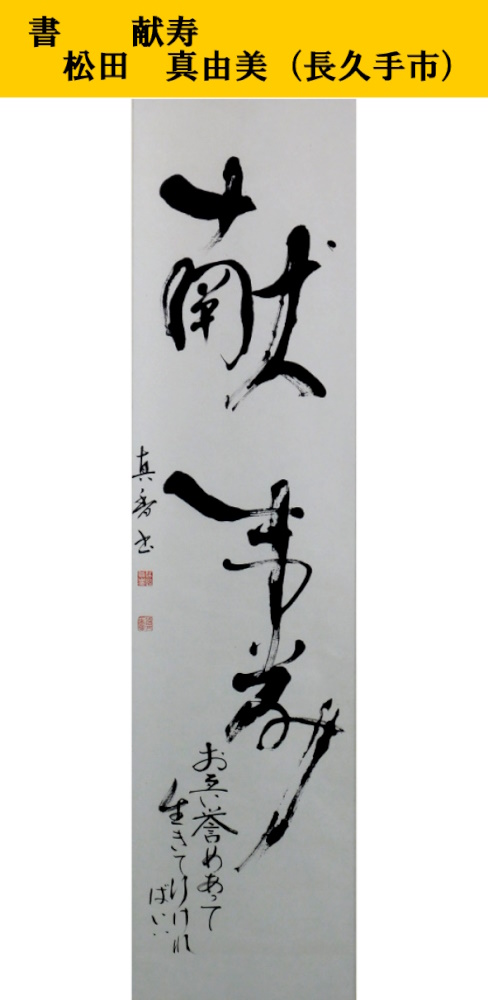 書　献寿
松田　真由美（長久手市）
献
寿
お互い誉めあって
生きて行けれ
ばいい
真香書